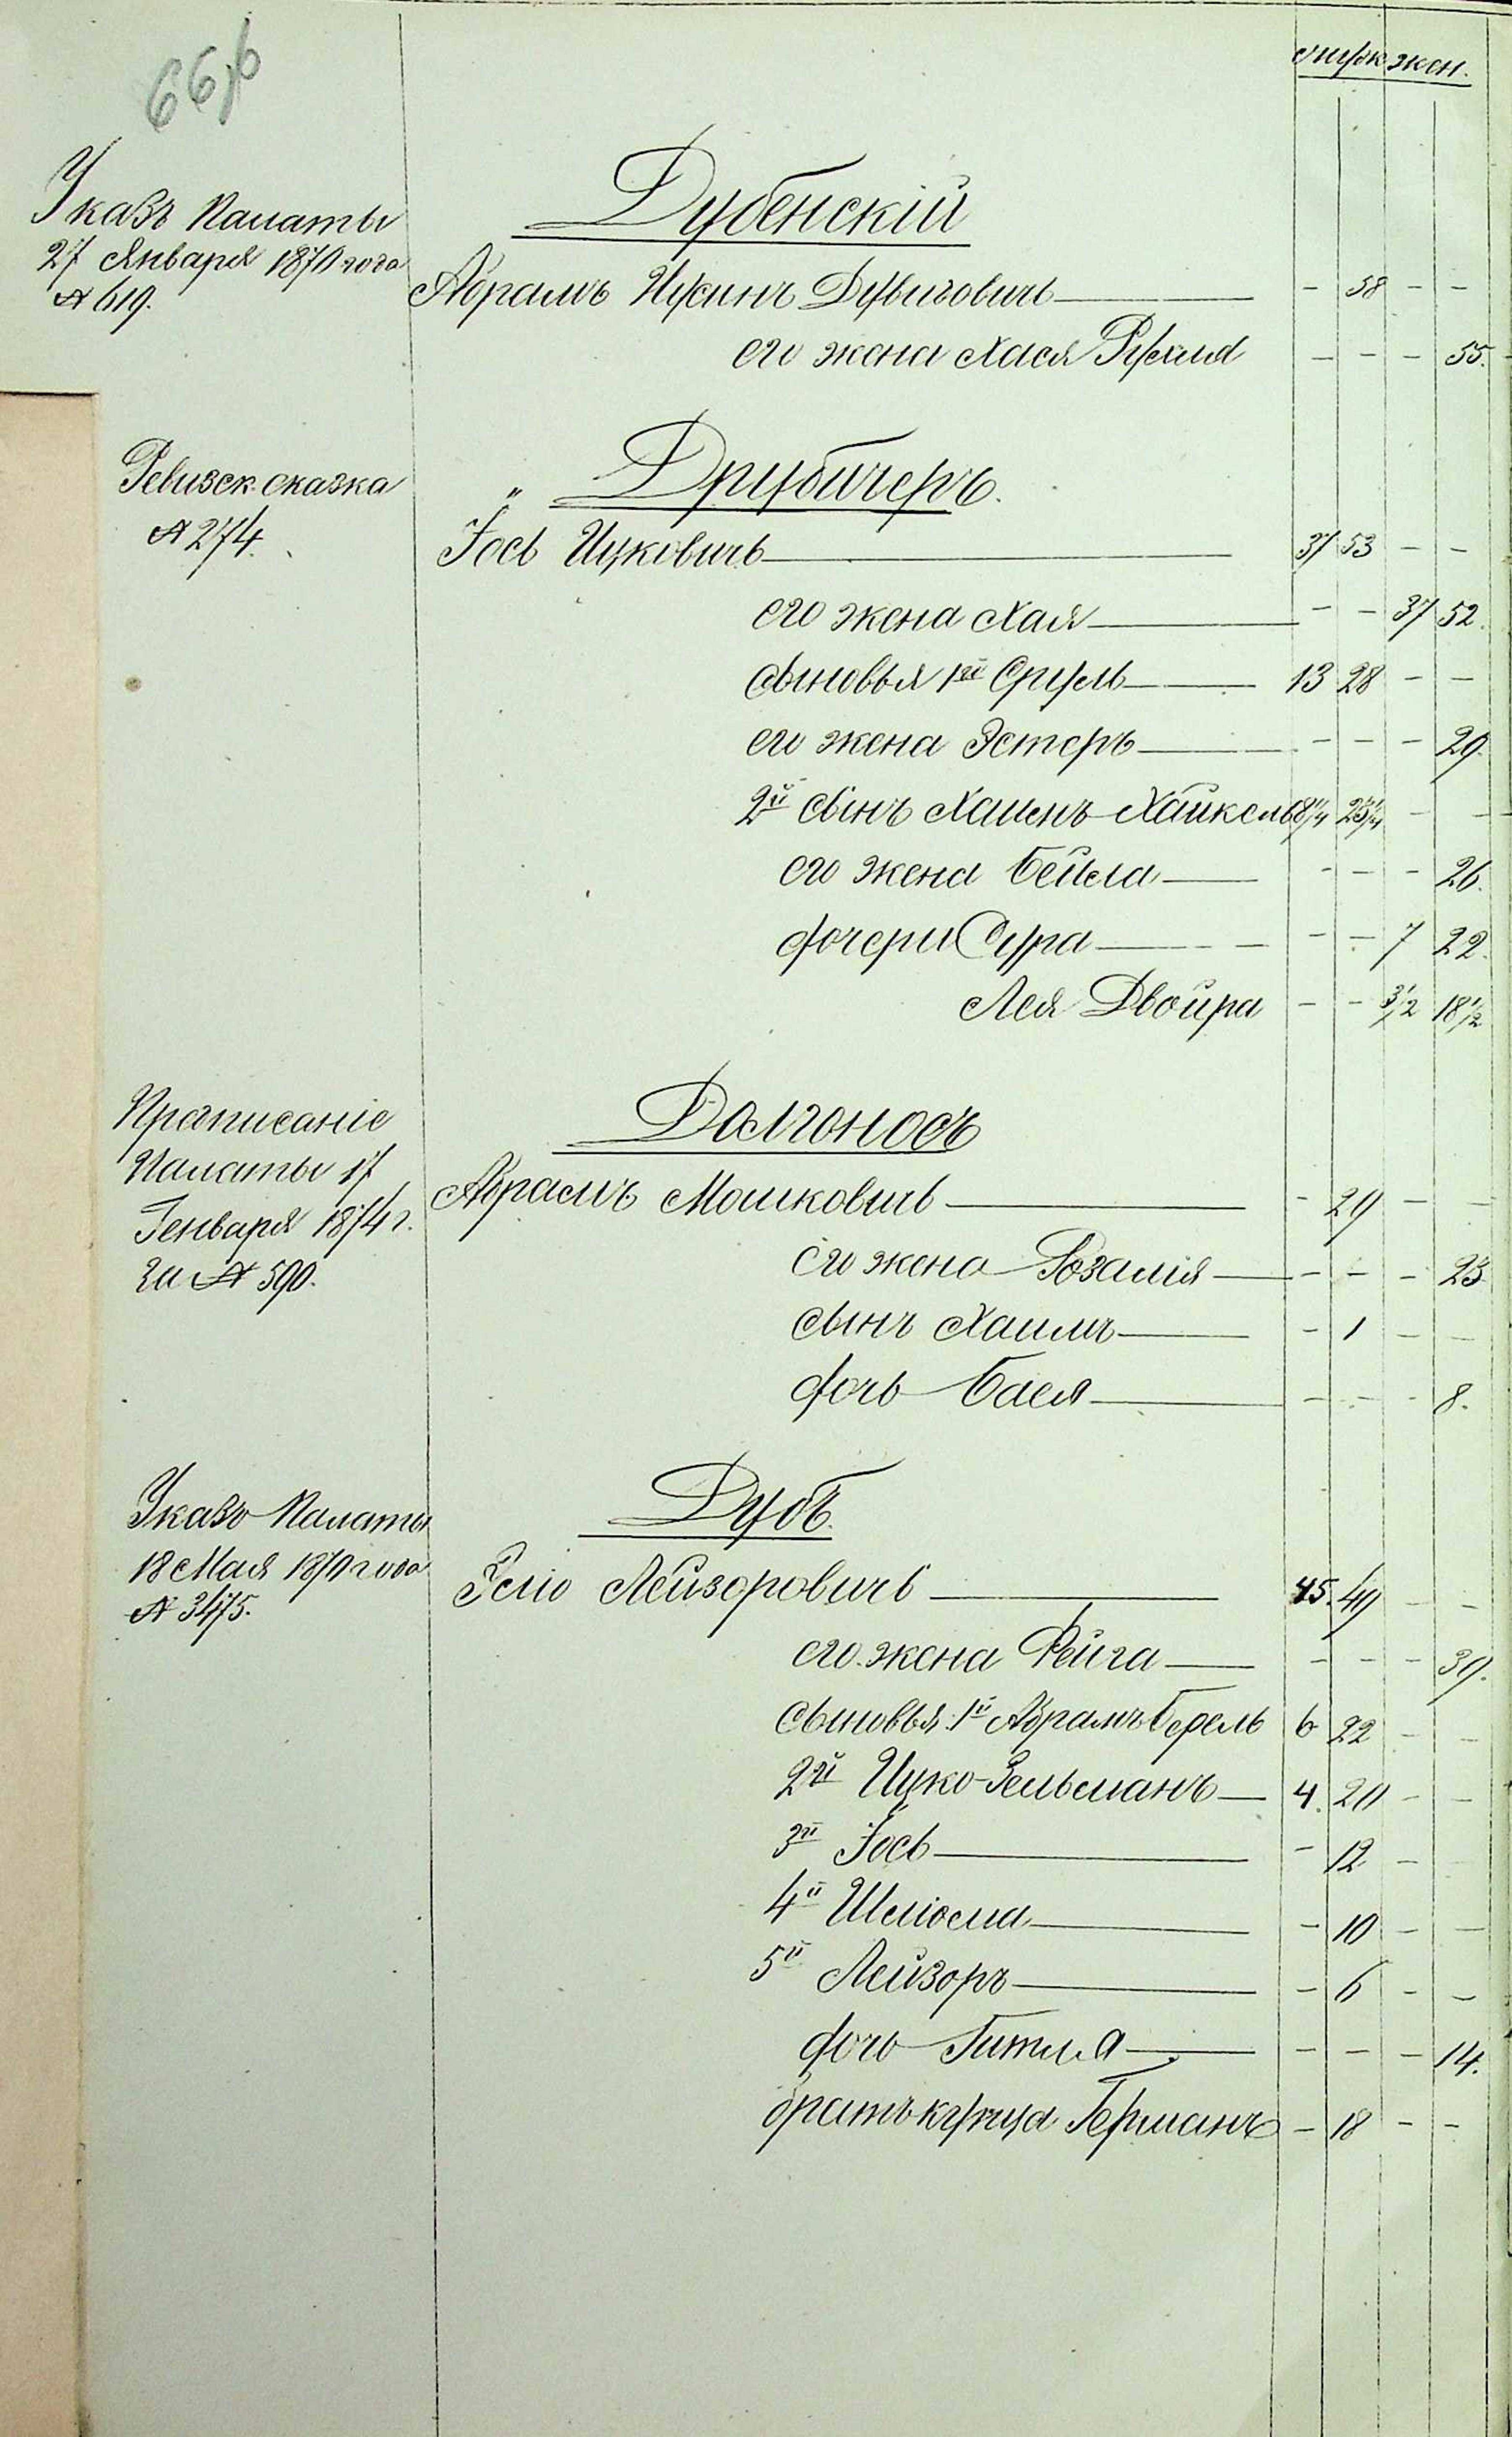 муж жен.
66,6
Указъ Палаты
27 Января 1870 года
№ 619.
Дубенскій
Абрамъ Нусинъ Дувидовичъ — - 58 - -
его жена Хася Рухля - - - 55.
Ревизск. сказка
№ 274.
Друбичеръ.
Іось Ицковичъ — 37 53 - -
его жена Хая — - - 37 52.
сыновья 1й Сруль — 13 28 - -
его жена Эстеръ — - - - 29.
2й сынъ Хаимъ-Хайкель 8 1/4 23 1/4 - -
его жена Бейла — - - - 26.
дочери Сура — - - 7 22.
Лея Двойра - - 3 1/2 18 1/2
Предписаніе
Палаты 17
Генваря 1874 г.
за № 590.
Долгоносъ
Абрамъ Мошковичъ — - 29 - -
его жена Розалія — - - - 25
сынъ Хаимъ — - 1 - -
дочь Бася — - - - 8.
Указъ Палаты
18 Мая 1870 года
№ 3475.
Дубъ.
Эліо Лейзоровичъ — 45. 49 - -
его жена Фейга — - - - 39.
сыновья: 1й Абрамъ Берель 6 22 - -
2й Ицко-Зельманъ — 4. 20 - -
3й Іось — - 12 -
4й Шліома — - 10 - -
5й Лейзоръ — - 6 - -
дочь Гитля — - - - 14.
братъ купца Германъ - 18 - -